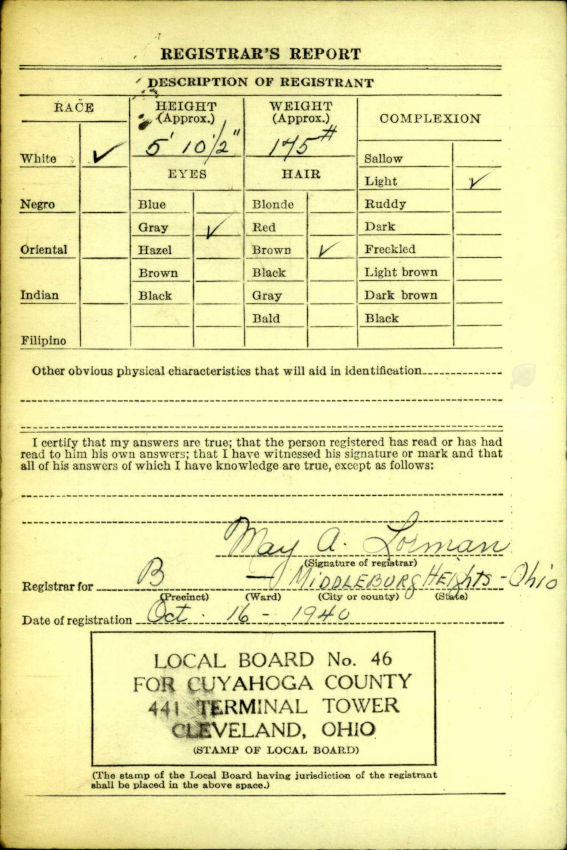 REGISTRAR'S REPORT
DESCRIPTION OF REGISTRANT
RACE
HEIGHT (Approx.)
WEIGHT (Approx.)
COMPLEXION
5' 10 1/2"
175#
White ✓
Sallow
EYES
HAIR
Light ✓
Negro
Blue
Blonde
Ruddy
Gray ✓
Red
Dark
Oriental
Hazel
Brown ✓
Freckled
Brown
Black
Light brown
Indian
Black
Gray
Dark brown
Bald
Black
Filipino
Other obvious physical characteristics that will aid in identification
I certify that my answers are true; that the person registered has read or has had
read to him his own answers; that I have witnessed his signature or mark and that
all of his answers of which I have knowledge are true, except as follows:
May A. Lorman
(Signature of registrar)
Registrar for B — MIDDLEBURG HEIGHTS - Ohio
(Precinct) (Ward) (City or county) (State)
Date of registration Oct. 16 - 1940
LOCAL BOARD No. 46
FOR CUYAHOGA COUNTY
441 TERMINAL TOWER
CLEVELAND, OHIO
(STAMP OF LOCAL BOARD)
(The stamp of the Local Board having jurisdiction of the registrant
shall be placed in the above space.)